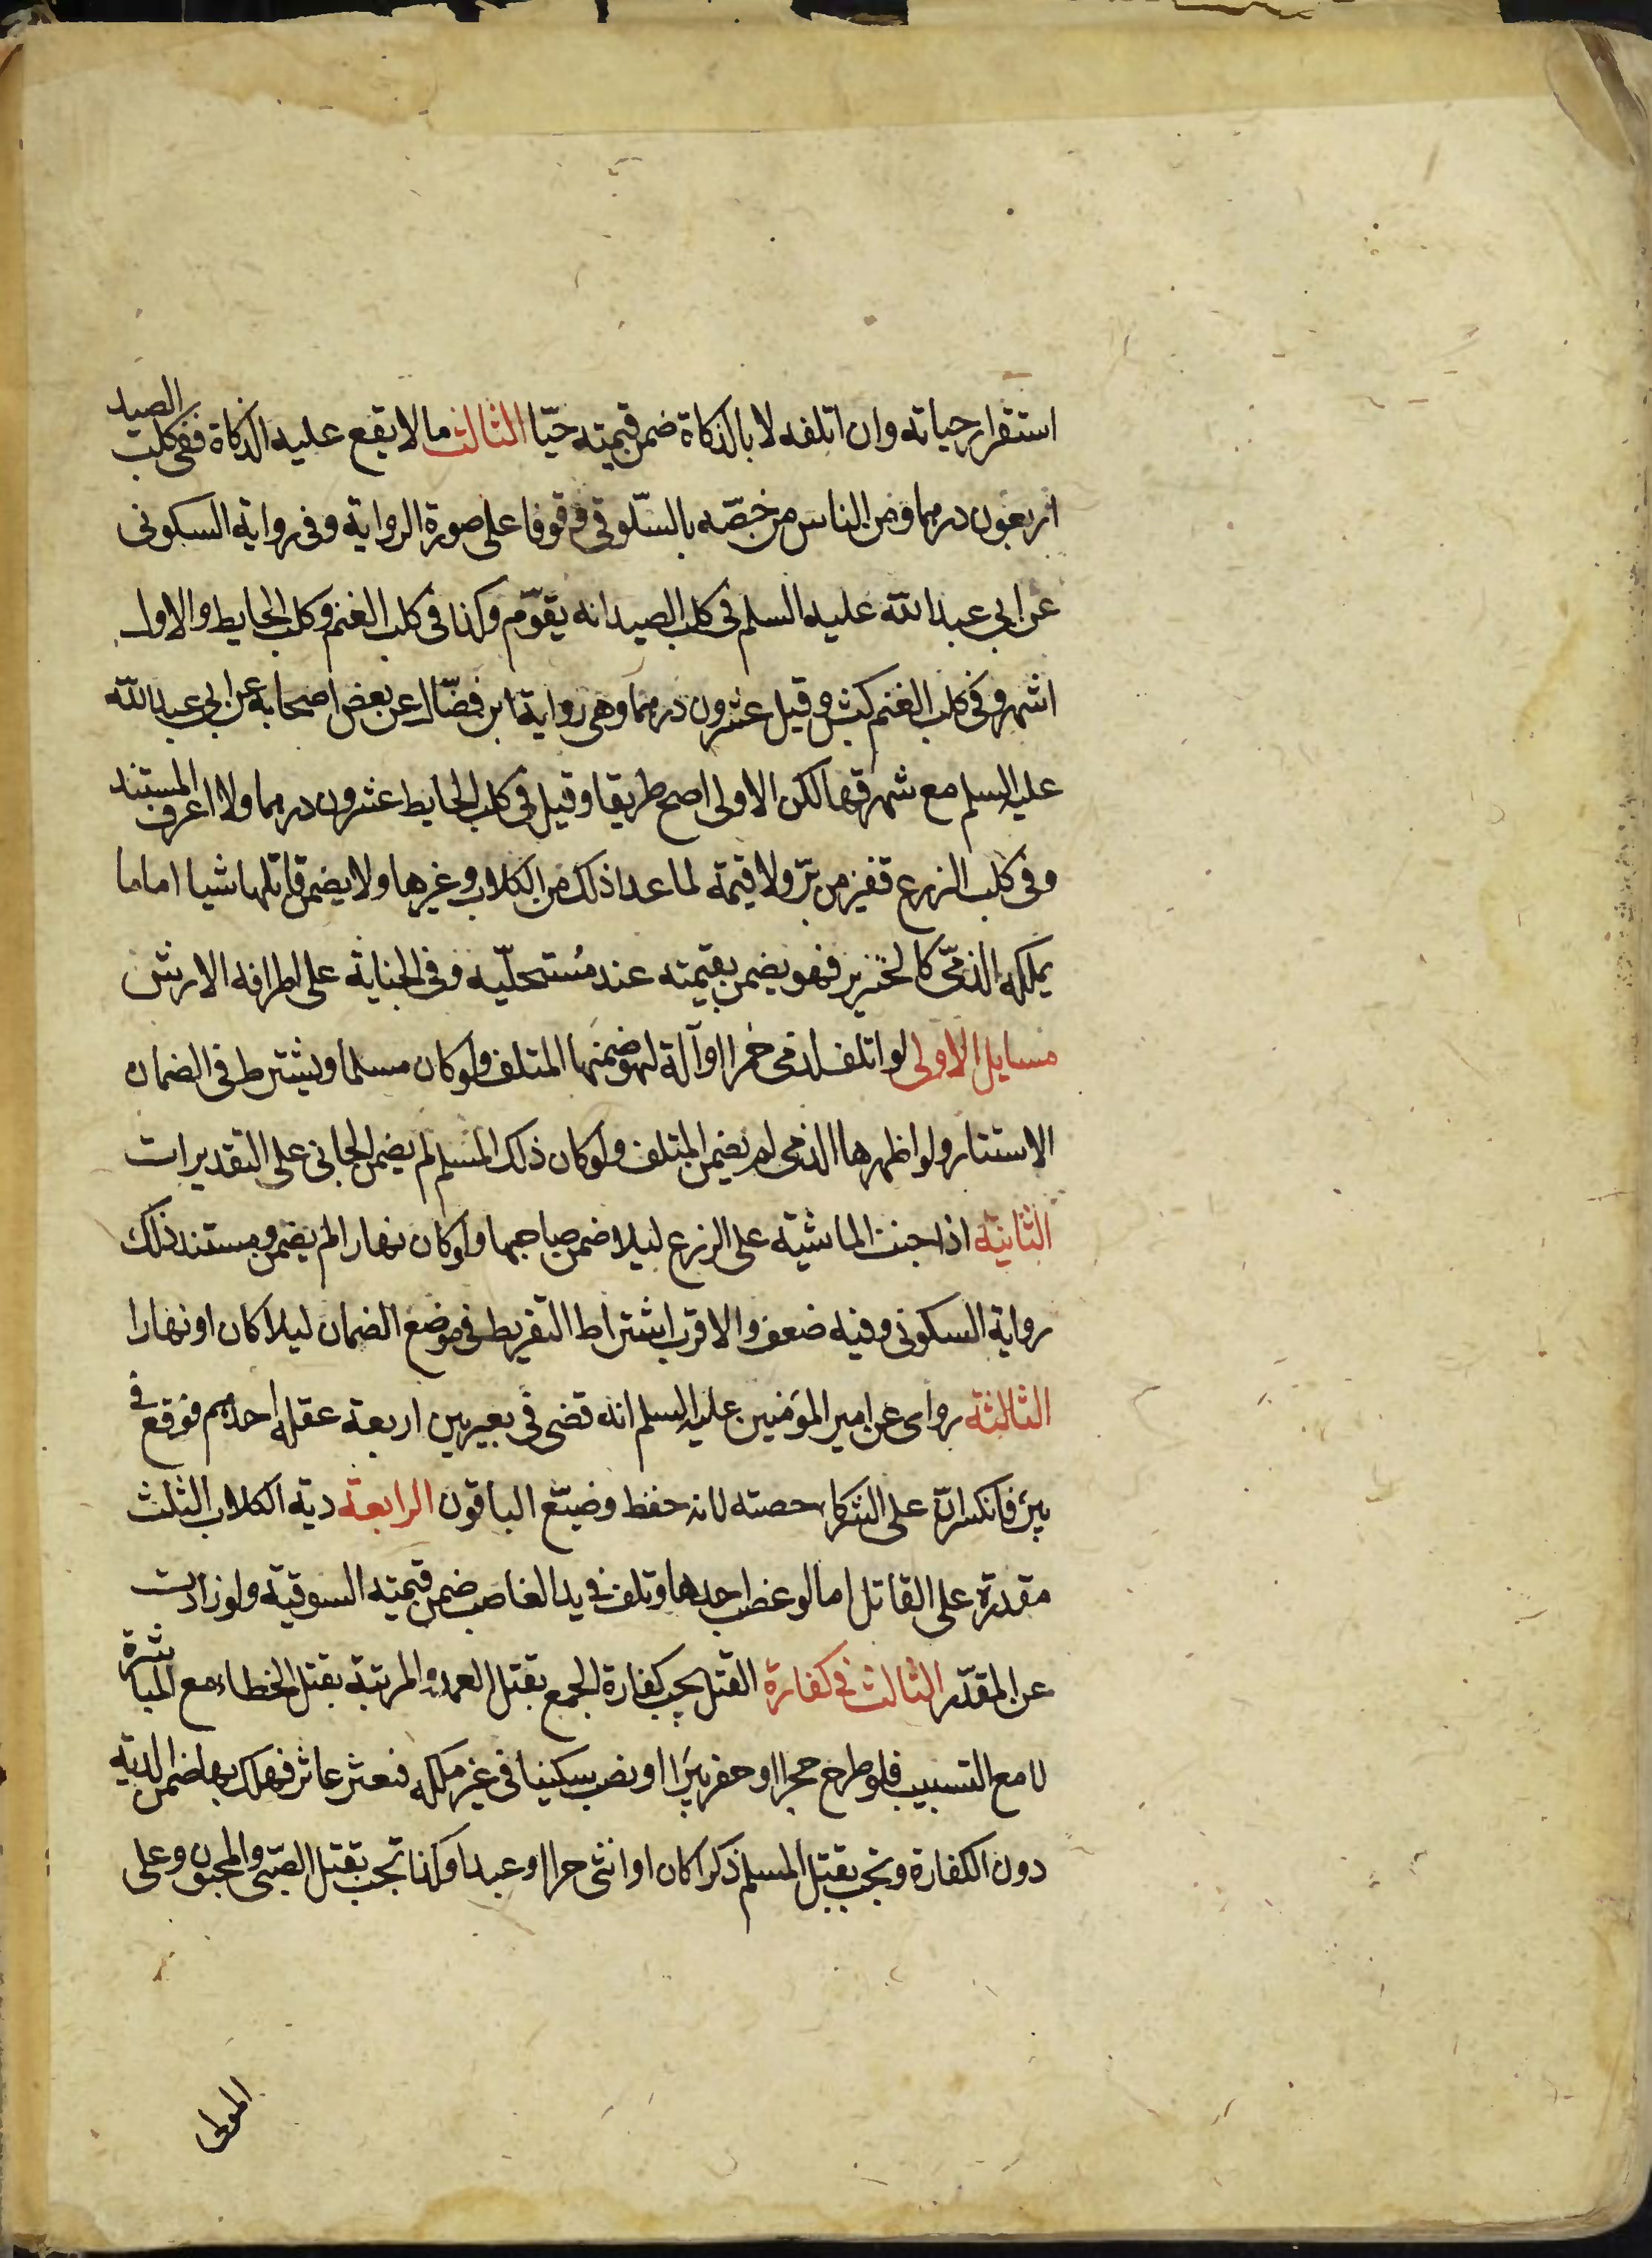 استقرار حياته وان اتلفه لا بالذكاة ضمن قيمته حيّا الثالث ما لا يقع عليه الذكاة ففى كلب الصيد
اربعون درهما ومن الناس من خصّه بالسّلوقى وقوفا على صورة الرواية وفى رواية السكونى
عن ابى عبد الله عليه السلم فى كلب الصيد انه يقوّم وكذا فى كلب الغنم وكلب الحايط والاول
اشهر وفى كلب الغنم كبش وقيل عشرون درهما وهى رواية ابن فضّال عن بعض اصحابه عن ابى عبد الله
عليه السلم مع شهرتها لكن الاولى اصح طريقا وقيل فى كلب الحايط عشرون درهما ولا اعرف المستند
وفى كلب الزرع قفيز من برّ ولا قيمة لما عدا ذلك من الكلاب وغيرها ولا يضمن قاتلها شيا اما ما
يملكه الذمّى كالخنزير فهو يضمن بقيمته عند مُستحلّيه وفى الجناية على اطرافه الارش
مسايل الاولى لو اتلف لذمى خمرا او آلة لهو ضمنها المتلف ولو كان مسلما ويشترط فى الضمان
الاستتار ولو اظهرها الذمى لم يضمن المتلف ولو كان ذلك لمسلم لم يضمن الجانى على التقديرات
الثانية اذا جنت الماشية على الزرع ليلا ضمن صاحبها ولو كان نهارا لم يضمن ومستند ذلك
رواية السكونى وفيه ضعف والاقرب اشتراط التفريط فى موضع الضمان ليلا كان او نهارا
الثالثة روى عن امير المؤمنين عليه السلم انه قضى فى بعير بين اربعة عقله احدهم فوقع فى
بير فانكسر انّ على الشركا حصته لانه حفظ وضيّع الباقون الرابعة دية الكلاب الثلث
مقدرة على القاتل اما لو غصب احدها وتلف فى يد الغاصب ضمن قيمته السوقية ولو زادت
عن المقدّر الثالث فى كفارة القتل يجب كفارة الجمع بقتل العمد والمرتبة بقتل الخطاء مع المباشرة
لا مع التسبيب فلو طرح حجرا او حفر بيرا او نصب سكينا فى غير ملكه فعثر عاثر فهلك بها ضمن الدية
دون الكفارة وتجب بقتل المسلم ذكرا كان او انثى حرا او عبدا وكذا تجب بقتل الصّبى والمجنون وعلى
المولى